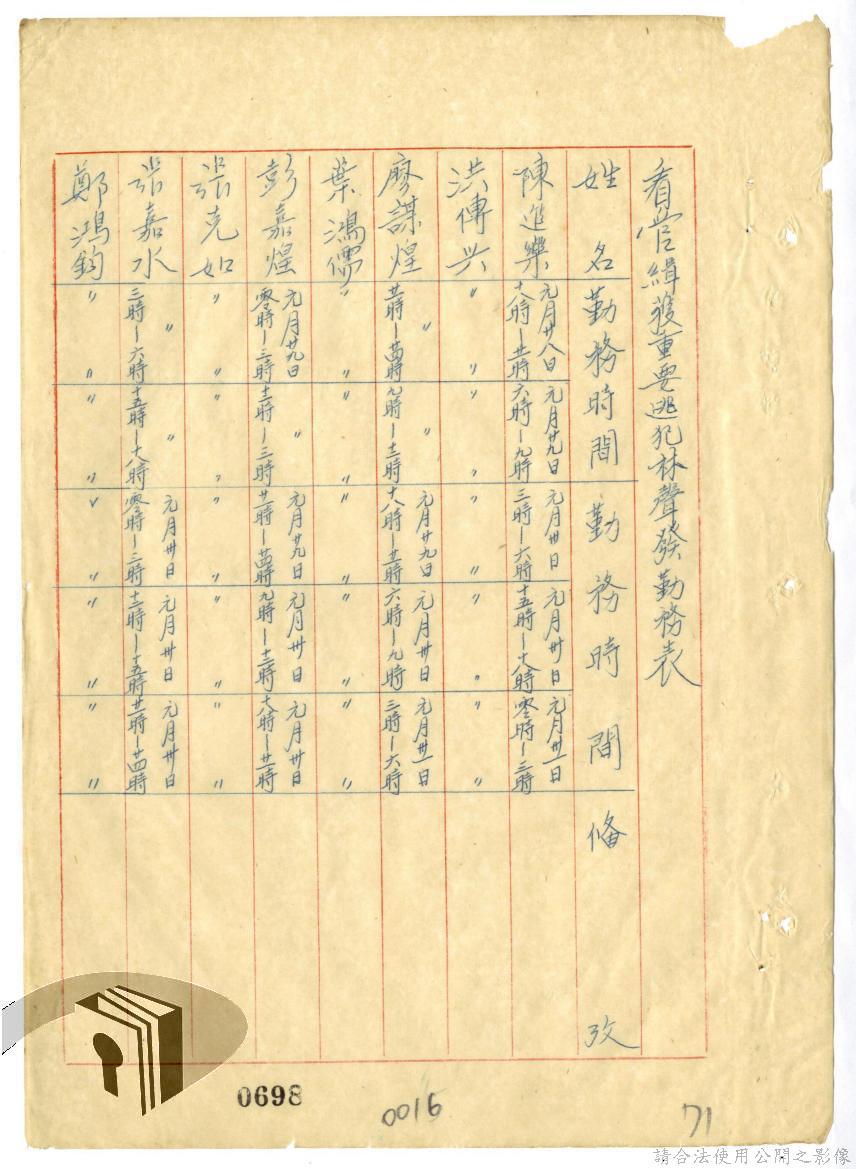 看管緝獲重要逃犯林聲發勤務表
姓名 勤務時間 勤務時間 備攷
陳進樂 元月廿八日十八時－廿一時 元月廿九日六時－九時 元月卅日三時－六時 元月卅日十五時－十八時 元月卅一日零時－三時
洪傳兴 〃 〃 〃 〃 〃 〃 〃 〃 〃 〃
廖謀煌 〃廿一時－廿四時 〃九時－十二時 元月廿九日十八時－廿一時 元月卅日六時－九時 元月卅一日三時－六時
葉鴻儒 〃 〃 〃 〃 〃 〃 〃 〃 〃 〃
彭嘉煌 元月廿九日零時－三時 〃十二時－三時 元月廿九日廿一時－廿四時 元月卅日九時－十二時 元月卅日十八時－廿一時
張克如 〃 〃 〃 〃 〃 〃 〃 〃 〃 〃
張嘉水 〃三時－六時 〃十五時－十八時 元月卅日零時－三時 元月卅日十二時－十五時 元月卅日廿一時－廿四時
鄭鴻鈞 〃 〃 〃 〃 〃 〃 〃 〃 〃 〃
0698
0016
71
請合法使用公開之影像